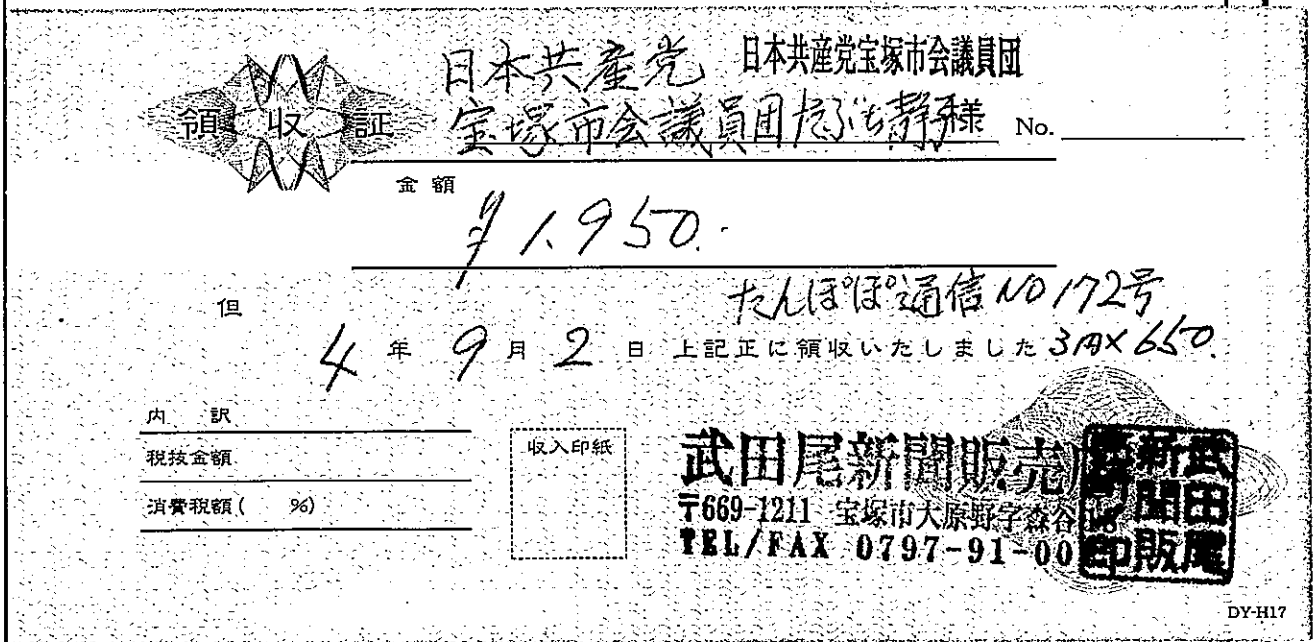 日本共産党 日本共産党宝塚市会議員団
領収証
宝塚市会議員団たぶち静子様 No.
金額
¥1,950.
但 たんぽぽ通信NO172号
4年9月2日 上記正に領収いたしました 3円×650.
内訳
税抜金額
消費税額( %)
収入印紙
武田尾新聞販売
〒669-1211 宝塚市大原野字森谷
TEL/FAX 0797-91-00
武田尾
新聞販
印
DY-H17